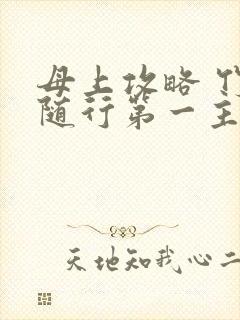 母上攻略
随行第一主
天地知我心二